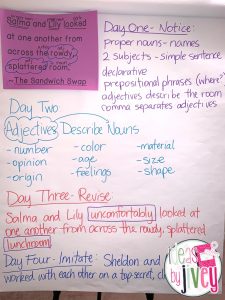 Salma and Lily looked
at one another from
across the rowdy,
splattered room.
-The Sandwich Swap
Day One- Notice:
proper nouns- names
2 subjects - simple sentence
declarative
prepositional phrases (where)
adjectives describe the room
comma separates adjectives
Day Two
Adjectives Describe Nouns
-number -color -material
-opinion -age -size
-origin -feelings -shape
Day Three- Revise
Salma and Lily uncomfortably looked at
one another from across the rowdy, splattered
lunchroom.
Day Four- Imitate: Sheldon and
worked with each other on a top-secret,
ideas
by jivey